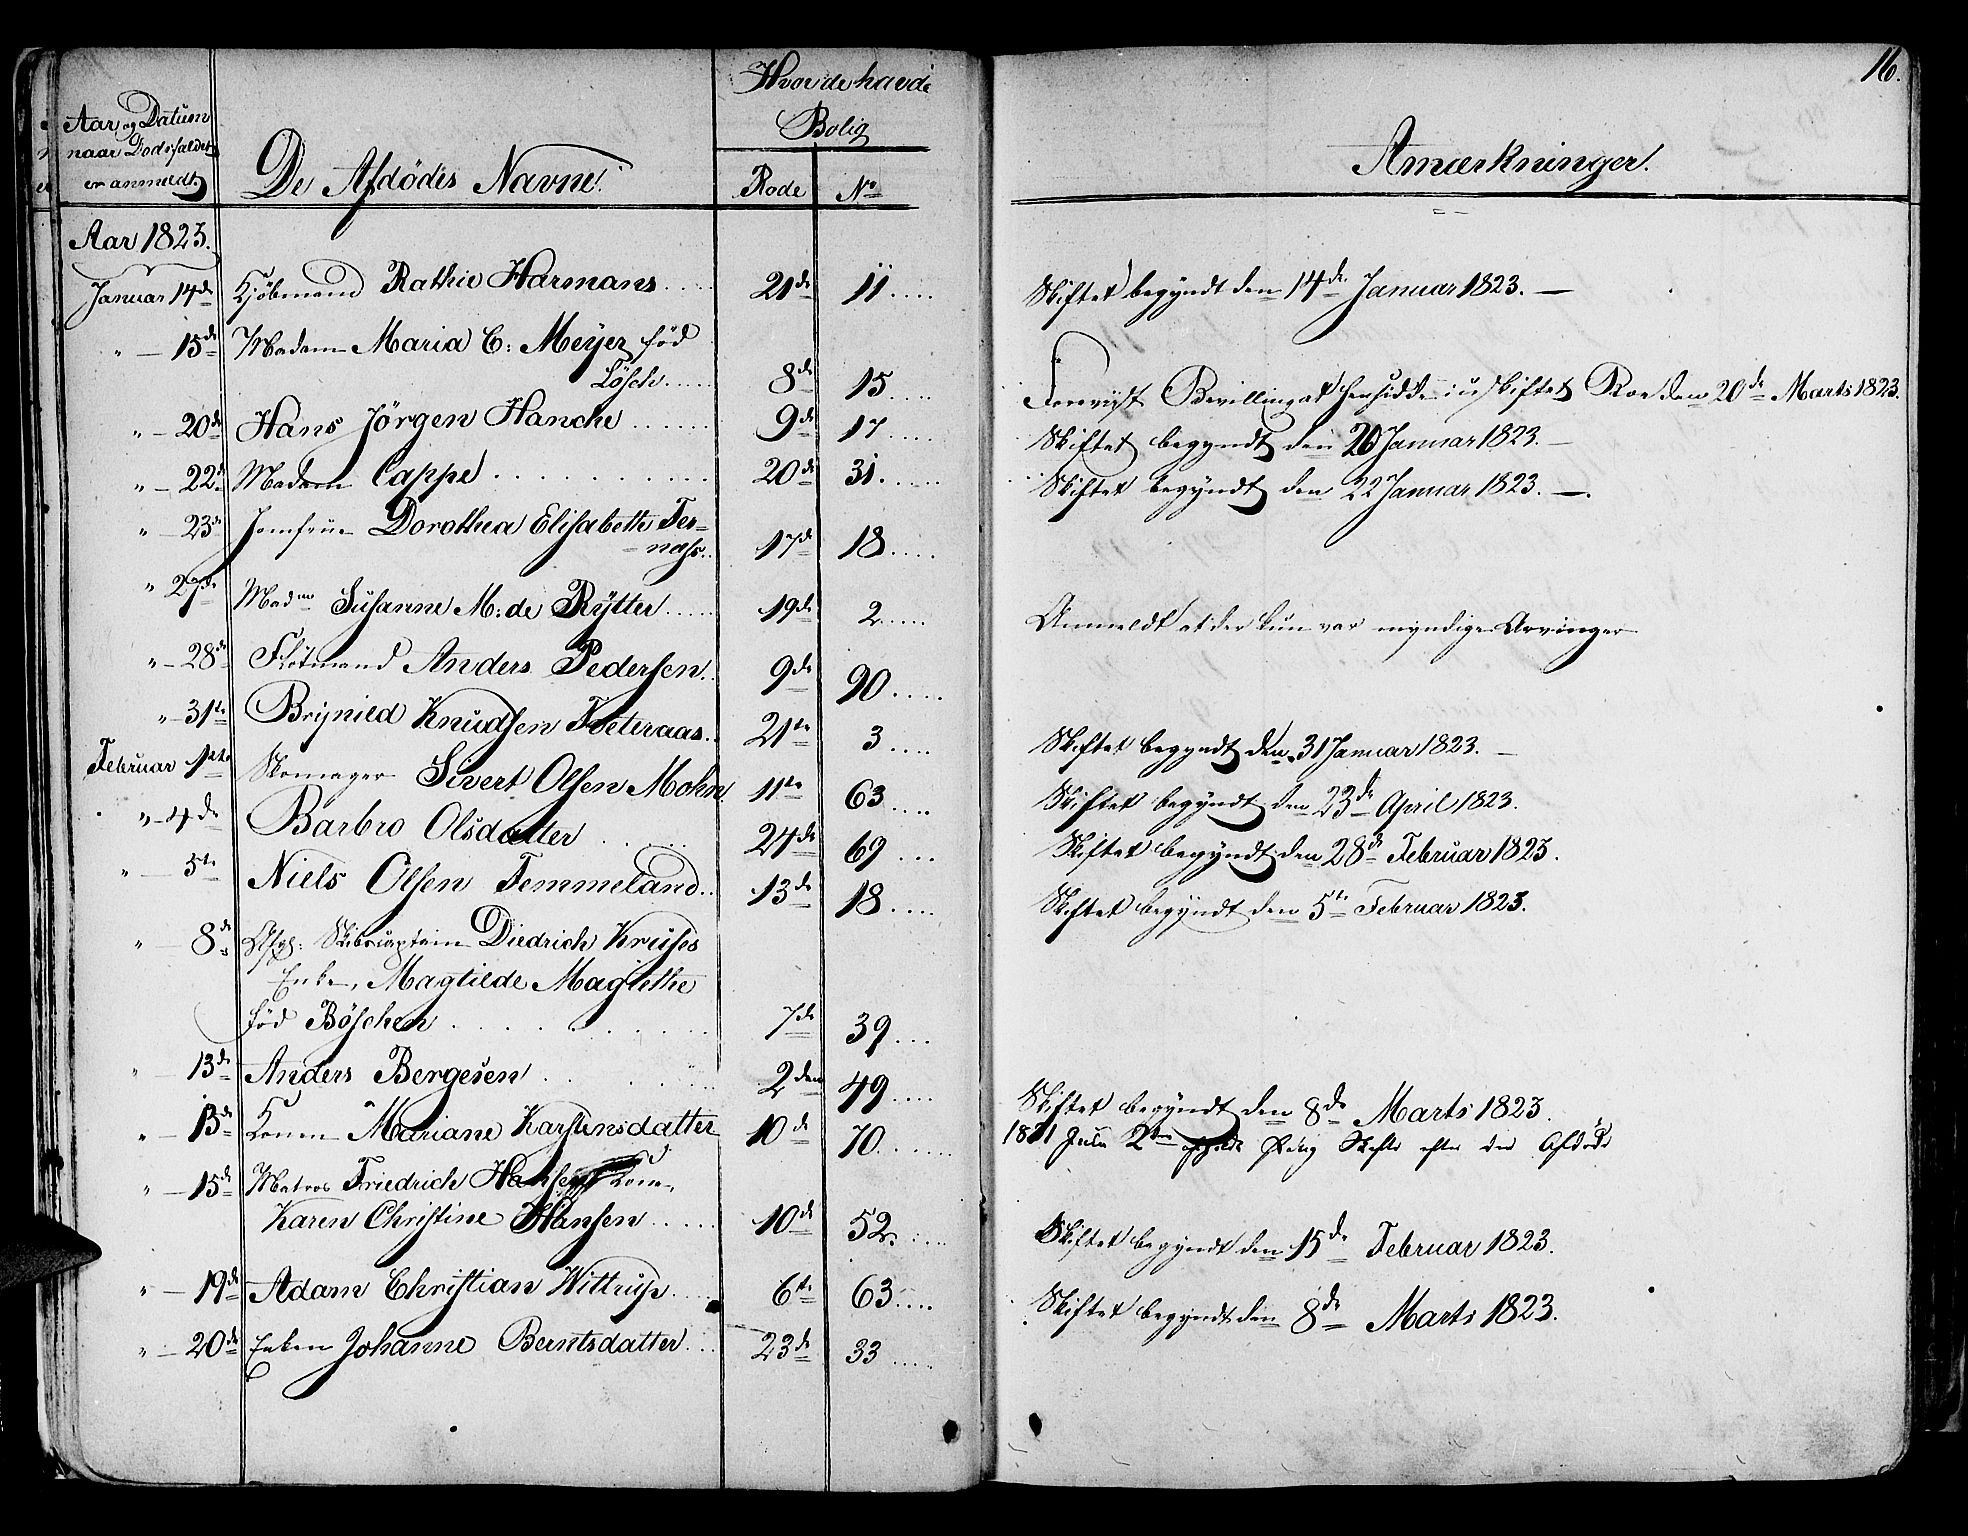 16.
Aar og Datum
naar Dödsfaldet
er anmeldt.
De Afdödes Navne.
Hvor de havde
Bolig
Rode No
Anmærkninger.
Aar 1823.
Januar 14de Kjöbmand Rathie Harmans..... 21de 11.... Skiftet begyndt den 14de Januar 1823. —
" — 15de Madam Maria C: Meÿer föd
Lösch..... 8de 15.... Foreviist Bevilling at hensidde i uskiftet Boe den 20de Marts 1823.
" — 20de Hans Jörgen Hanche....... 9de 17..... Skiftet begyndt den 20 Januar 1823. —
" — 22de Madam Cappe........... 20de 31..... Skiftet begÿndt den 22 Januar 1823. —.
" — 23de Jomfrue Dorothea Elisabeth Fer=
nass.. 17de 18....
" 27de Madme Susanne M: de Rÿtter..... 19de 2..... Anmeldt at der kun var myndige Arvinger
" — 28de Flötmand Anders Pedersen.. 9de 90.....
" — 31te Brÿnild Knudsen Tveteraas.. 21te 3.... Skiftet begyndt den 31 Januar 1823. —
Februar 1ste Skomager Sivert Olsen Mohn 11te 63.... Skiftet begyndt den 23de April 1823.
" — 4de Barbro Olsdatter...... 24de 69... Skiftet begyndt den 28de Februar 1823.
" — 5te Niels Olsen Femmeland.. 13de 18.... Skiftet begyndt den 5te Februar 1823.
" — 8de Afg: Skibscaptein Diedrich Kruses
Enke, Magtilde Magrethe
föd Böschen........ 7de 39...
" — 13de Anders Bergesen...... 2den 49..... Skiftet begyndt den 8de Marts 1823.
" — 13de Konen Mariane Karstensdatter 10de 70....... Skifte efter den Afdöde
" — 15de Matros Friedrich Hansens Kone,
Karen Christine Hansen..... 10de 52.... Skiftet begyndt den 15de Februar 1823.
" — 19de Adam Christian Wittrup.... 6te 63.... Skiftet begyndt den 8de Marts 1823.
" — 20de Enken Johanne Berntsdatter... 23de 33.....